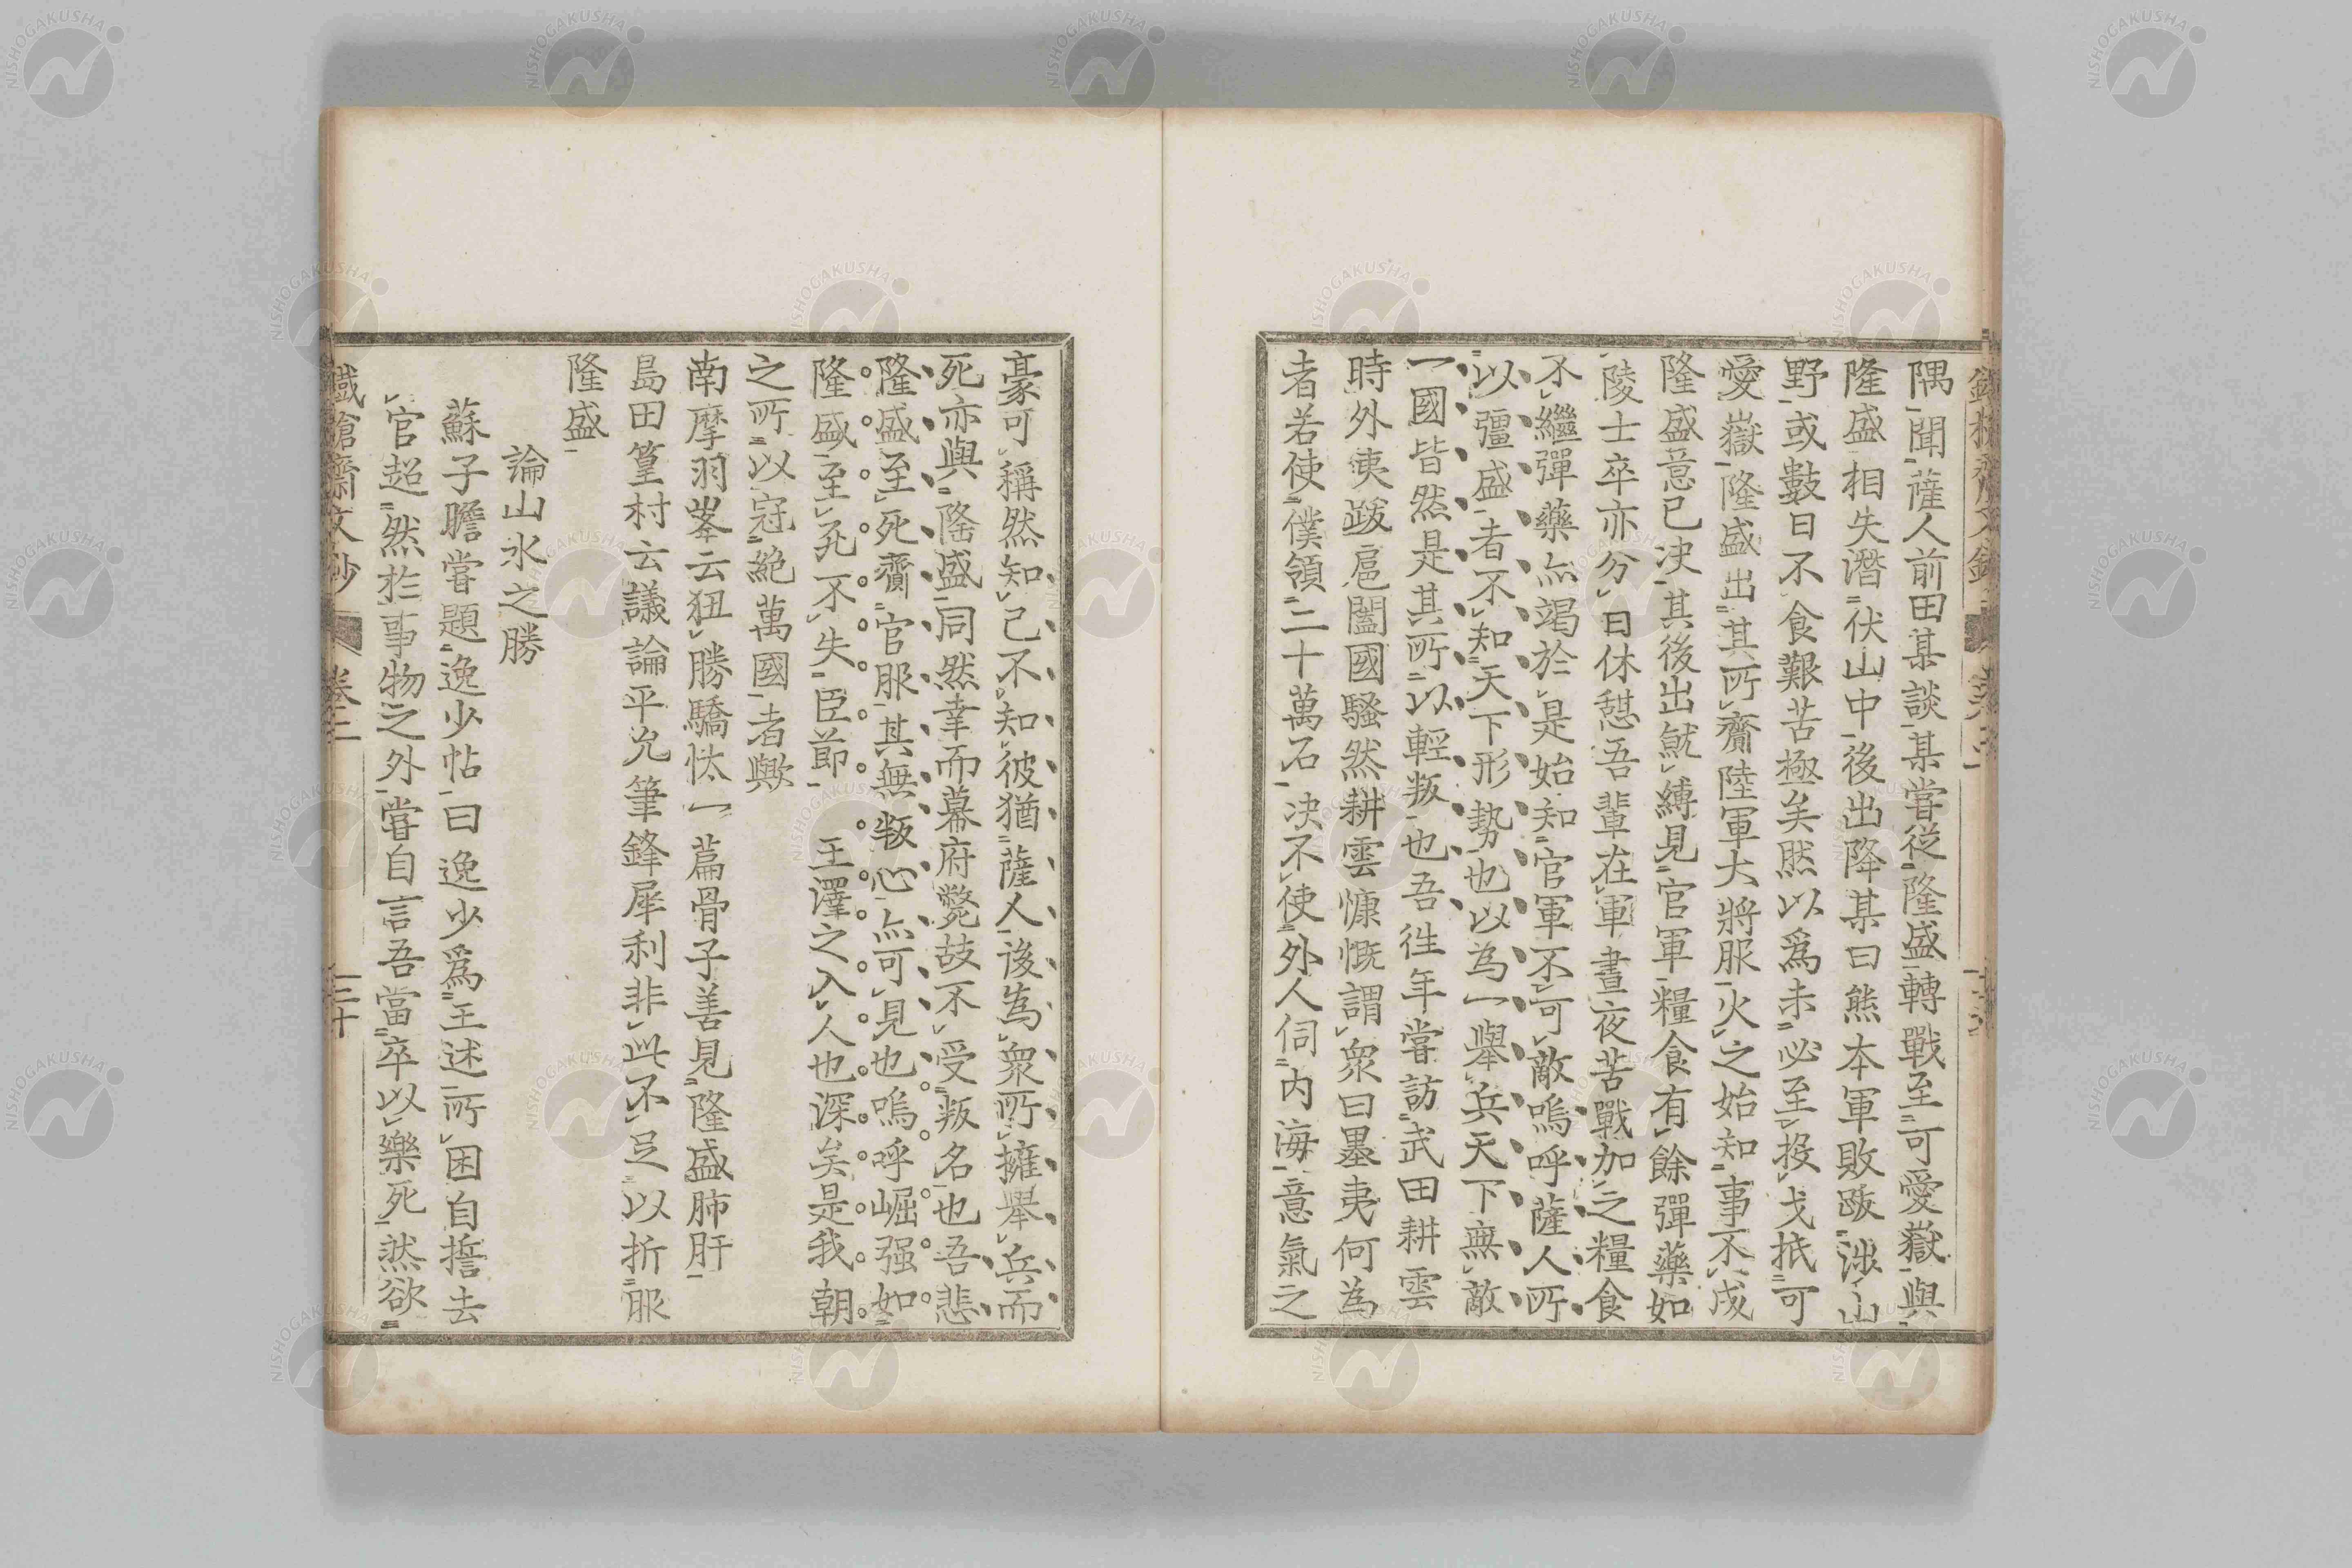 隅聞薩人前田某談某嘗從隆盛轉戰至可愛嶽與
隆盛相失潛伏山中後出降某曰熊本軍敗跋涉山
野或數日不食艱苦極矣然以爲未必至投戈抵可
愛嶽隆盛出其所齎陸軍大將服火之始知事不成
隆盛意已决其後出就縛見官軍糧食有餘彈藥如
陵士卒亦分日休憩吾輩在軍晝夜苦戰加之糧食
不繼彈藥亦竭於是始知官軍不可敵嗚呼薩人所
以彊盛者不知天下形勢也以為一擧兵天下無敵
一國皆然是其所以輕叛也吾徃年嘗訪武田耕雲
時外夷跋扈闔國騷然耕雲慷慨謂衆曰墨夷何為
者若使僕領二十萬石决不使外人伺内海意氣之
豪可稱然知己不知彼猶薩人後為衆所擁擧兵而
死亦與隆盛同然幸而幕府斃故不受叛名也吾悲
隆盛至死齎官服其無叛心亦可見也嗚呼崛强如
隆盛至死不失臣節 王澤之入人也深矣是我朝
之所以冠絶萬國者歟
南摩羽峯云狃勝驕怢一篇骨子善見隆盛肺肝
島田篁村云議論平允筆鋒犀利非此不足以折服
隆盛
論山水之勝
蘇子瞻嘗題逸少帖曰逸少爲王述所困自誓去
官超然於事物之外嘗自言吾當卒以樂死然欲
鐵槍齋文鈔 卷二 三十